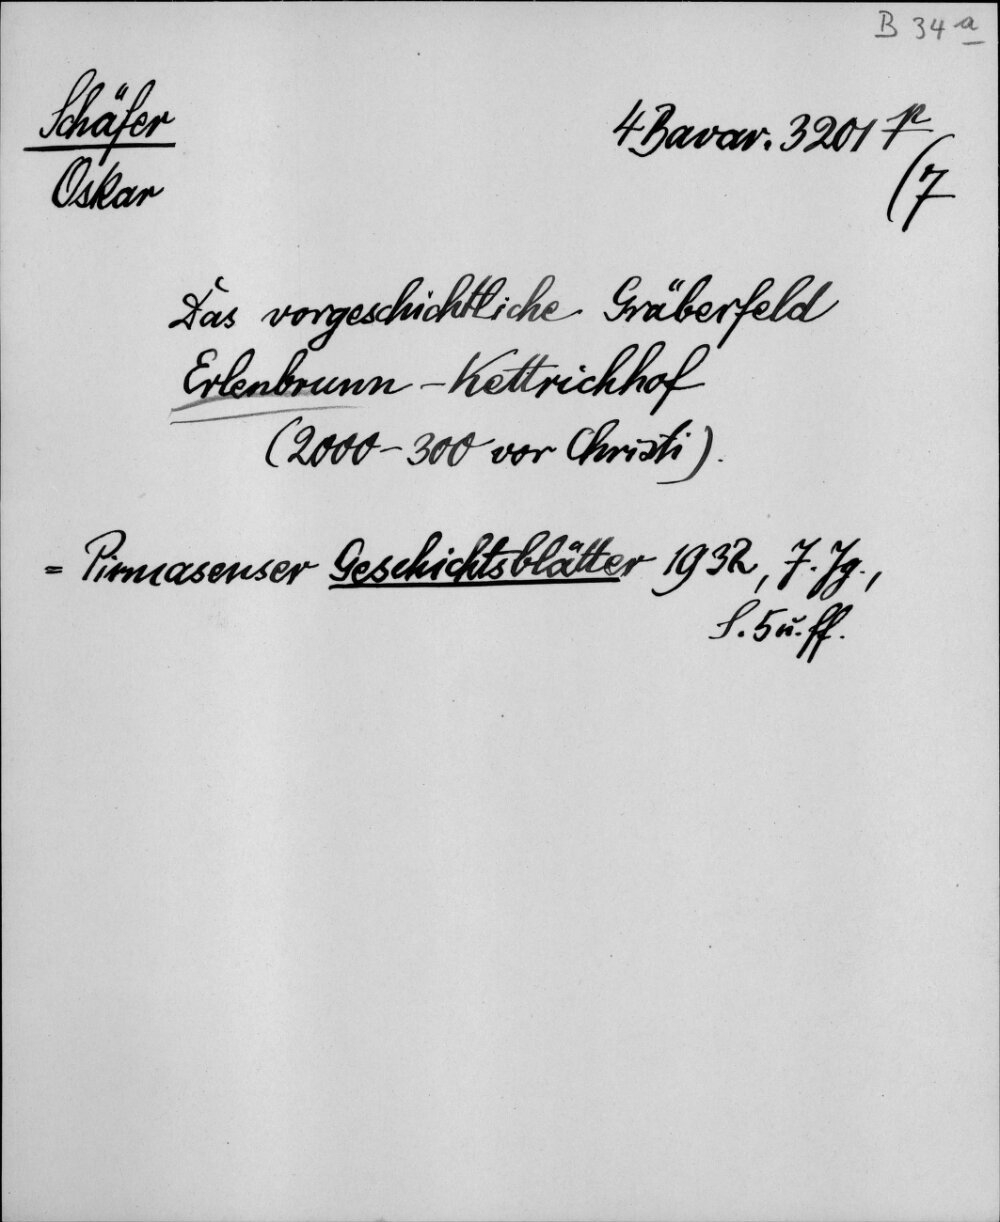 B 34 a
Schäfer
Oskar
4 Bavar. 3201 p
(7
Das vorgeschichtliche Gräberfeld
Erlenbrunn - Kettrichhof
(2000 - 300 vor Christi).
= Pirmasenser Geschichtsblätter 1932, 7. Jg.,
S. 5 u. ff.